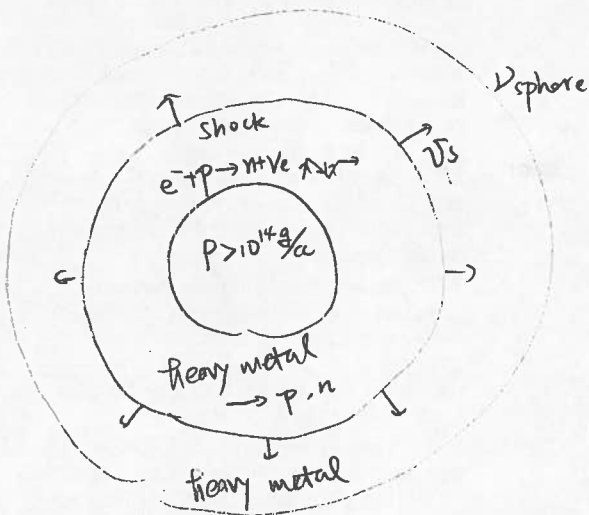 νsphere
shock
υs
e⁻+p→n+νe
ρ>10¹⁴ g/cc
heavy metal
→ p, n
heavy metal